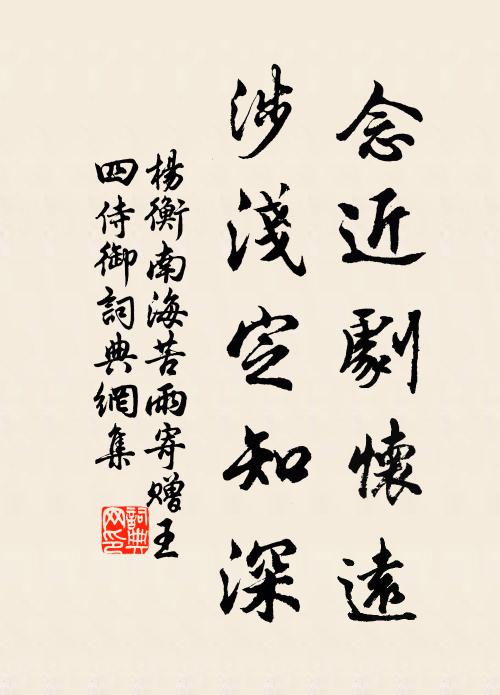 念近劇懷遠
涉淺定知深
楊衡南海苦雨寄贈王
四侍御詞典網集
詞典
网印